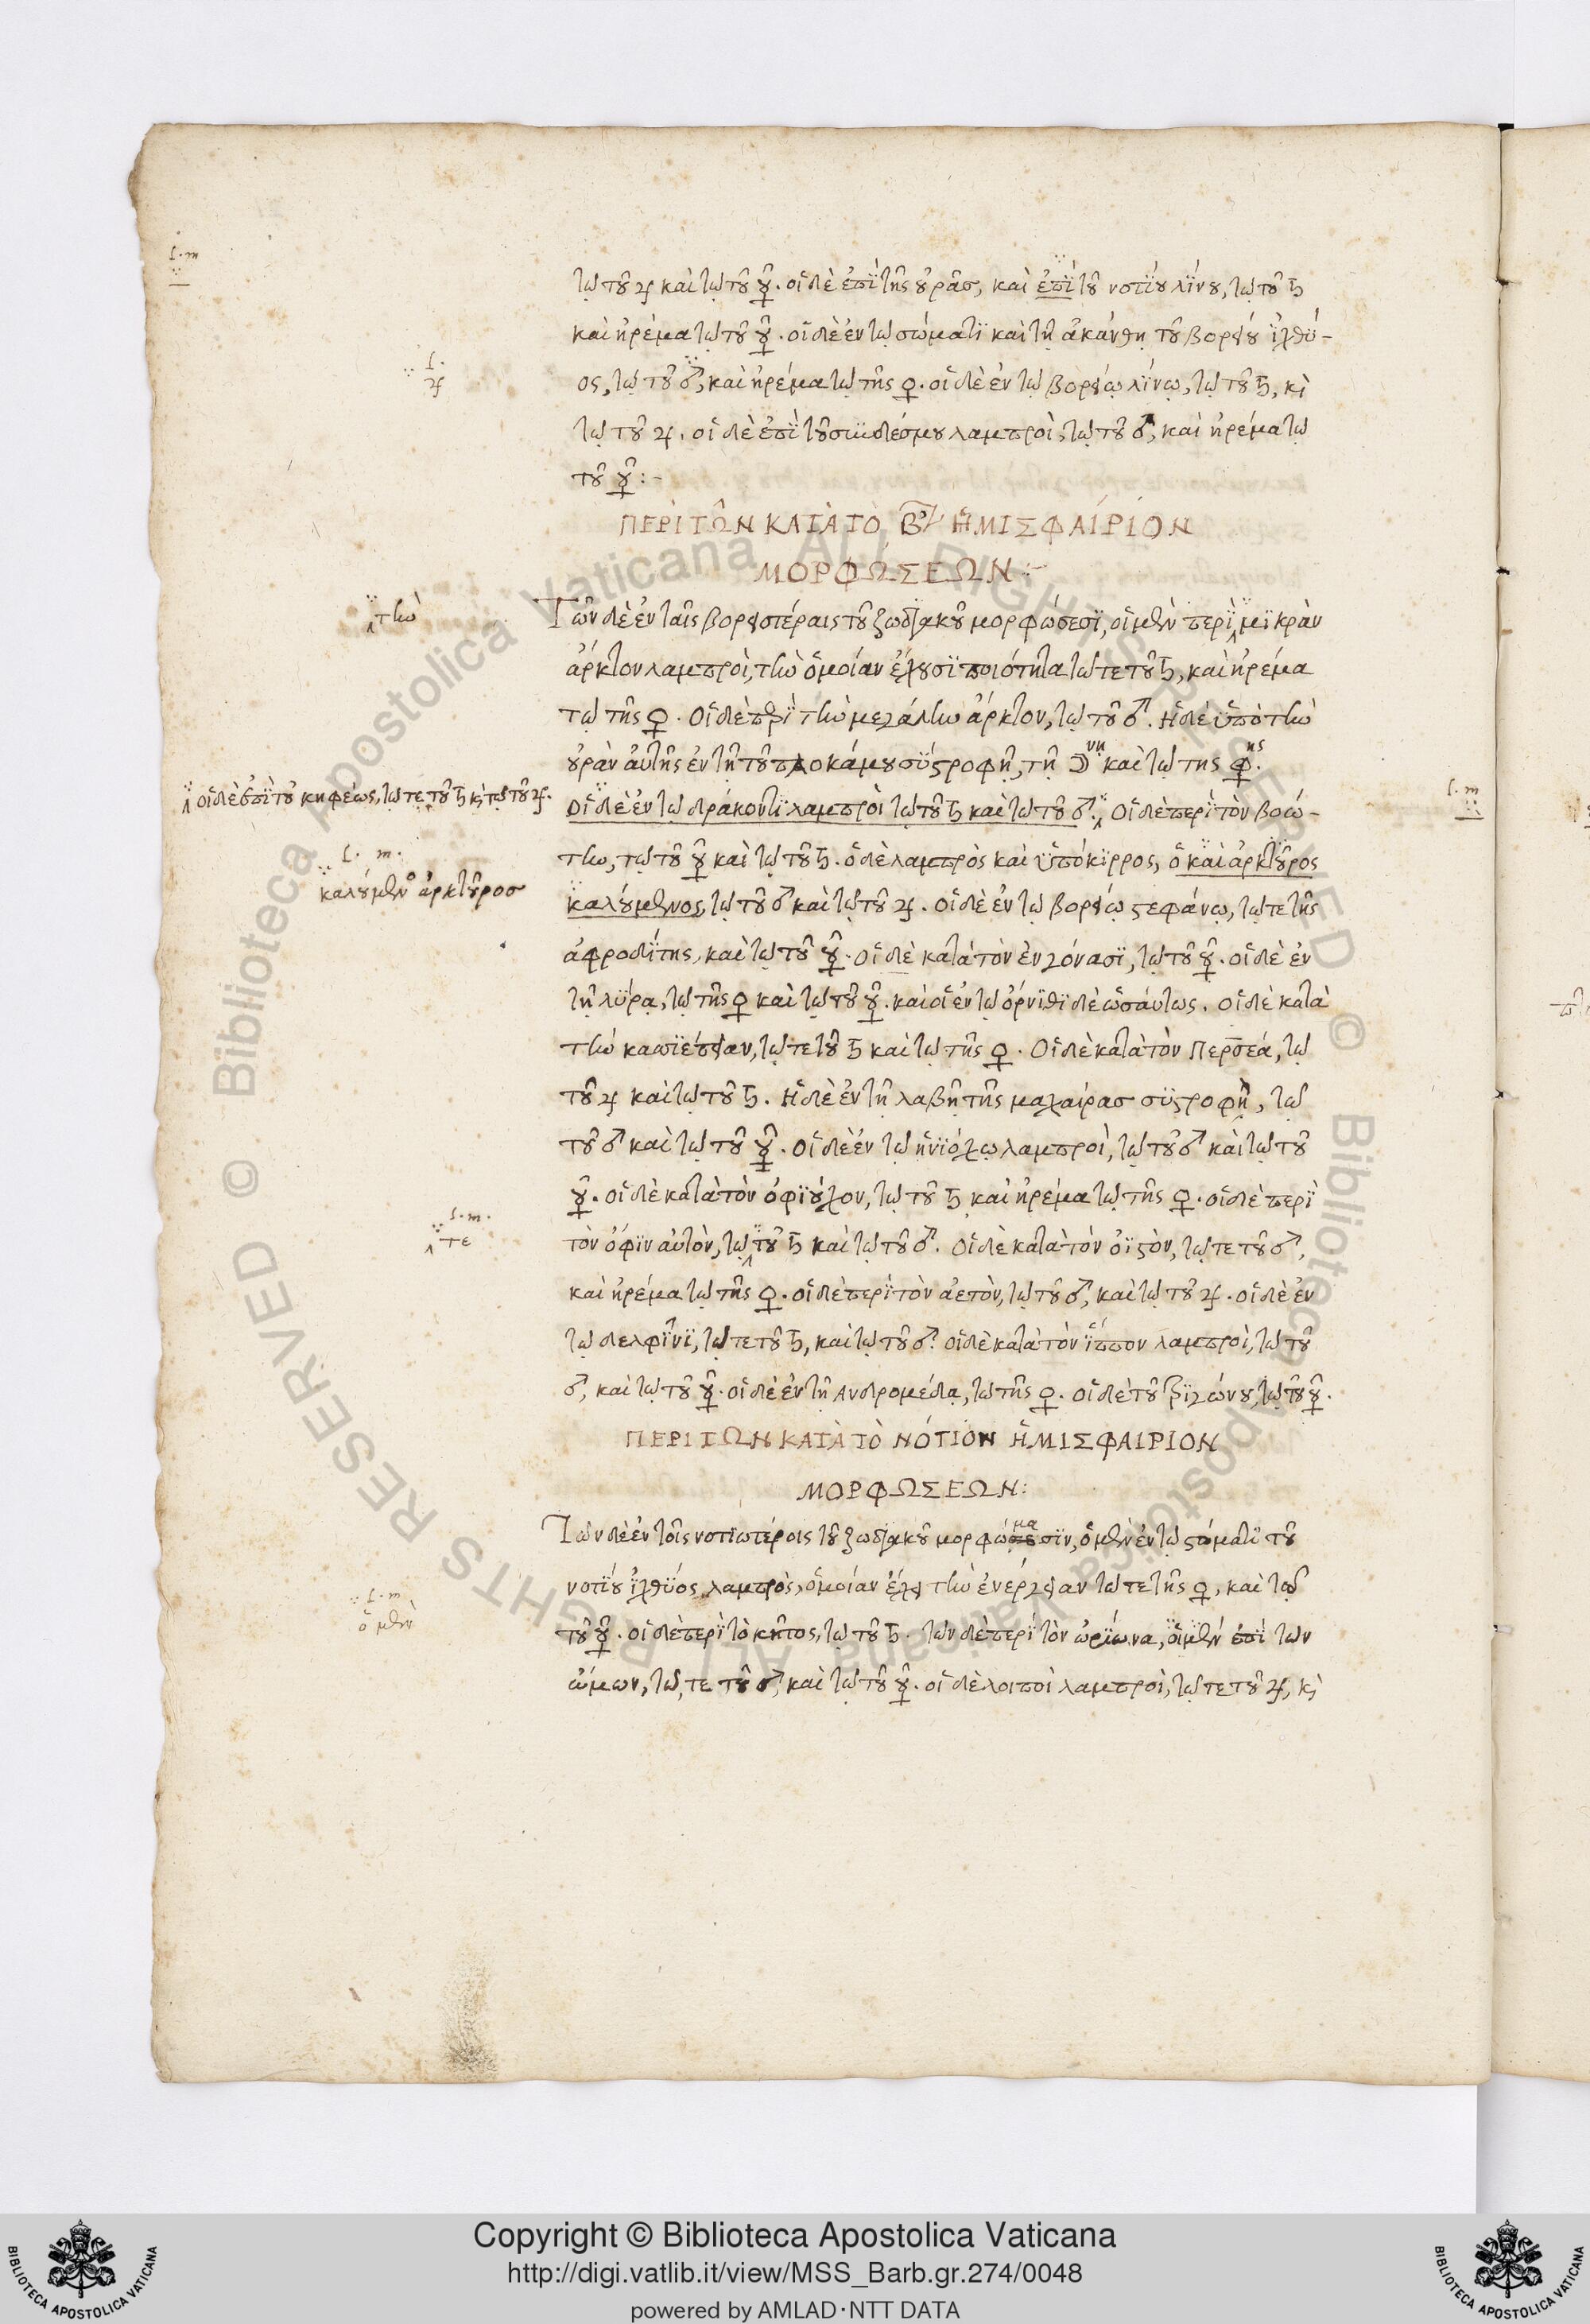 τῷ τοῦ ♃ καὶ τῷ τοῦ ☿. οἱ δὲ ἐπὶ τῆς οὐρᾶσ, καὶ ἐπὶ τοῦ νοτίου λίνου, τῷ τοῦ ♄
καὶ ἠρέμα τῷ τοῦ ☿. οἱ δὲ ἐν τῷ σώματι καὶ τῇ ἀκάνθῃ τοῦ βορείου ἰχθύ-
ος, τῷ τοῦ ♂, καὶ ἠρέμα τῷ τῆς ♀. οἱ δὲ ἐν τῷ βορείῳ λίνῳ, τῷ τοῦ ♄, κὶ
τῷ τοῦ ♃. οἱ δὲ ἐπὶ τοῦ συνδέσμου λαμπροὶ, τῷ τοῦ ♂, καὶ ἠρέμα τῷ
τοῦ ☿:-
ΠΕΡῚ ΤΩ͂Ν ΚΑΤᾺ ΤῸ ΒΟΡ ἩΜΙΣΦΑΊΡΙΟΝ
ΜΟΡΦΏΣΕΩΝ:-
Τῶν δὲ ἐν ταῖς βορειοτέραις τοῦ ζωδιακοῦ μορφώσεσι, οἱ μὲν περὶ μικρὰν
τὴν
ἄρκτον λαμπροὶ, τὴν ὁμοίαν ἔχουσι ποιότητα τῷ τε τοῦ ♄, καὶ ἠρέμα
τῷ τῆς ♀. Οἱ δὲ περὶ τὴν μεγάλην ἄρκτον, τῷ τοῦ ♂. Ἡ δὲ ὑπὸ τὴν
οὐρὰν αὐτῆς ἐν τῇ τοῦ πλοκάμου συστροφῇ, τῇ ☽νῃ καὶ τῷ της ♀ης.
οἱ δὲ ἐπὶ τοῦ κηφέως, τῷ τε τοῦ ♄ κὶ τῷ τοῦ ♃.
Οἱ δὲ ἐν τῷ δράκοντι λαμπρὸι τῷ τοῦ ♄ καὶ τῷ τοῦ ♂. Οἱ δὲ περὶ τὸν βοώ-
την, τῷ τοῦ ☿ καὶ τῷ τοῦ ♄. ὁ δὲ λαμπρὸς καὶ ὑπόκιρρος, ὁ καὶ ἀρκτοῦρος
καλούμενος, τῷ τοῦ ♂ καὶ τῷ τοῦ ♃. Οἱ δὲ ἐν τῷ βορείῳ στεφάνῳ, τῷ τε τῆς
καλούμενος ἀρκτοῦροσ
ἀφροδίτης, καὶ τῷ τοῦ ☿. Οἱ δὲ κατὰ τὸν ἐν γόνασι, τῷ τοῦ ☿. οἱ δὲ ἐν
τῇ λύρᾳ, τῷ τῆς ♀ καὶ τῷ τοῦ ☿. καὶ οἱ ἐν τῷ ὄρνιθι δὲ ὡσάυτως. Οἱ δὲ κατὰ
τὴν κασιέπειαν, τῷ τε τοῦ ♄ καὶ τῷ τῆς ♀. Οἱ δὲ κατὰ τὸν Περσέα, τῷ
τοῦ ♃ καὶ τῷ τοῦ ♄. Ἡ δὲ ἐν τῇ λαβῇ τῆς μαχαίρασ συστροφὴ, τῷ
τοῦ ♂ καὶ τῷ τοῦ ☿. Οἱ δὲ ἐν τῷ ἡνιόχῳ λαμπροὶ, τῷ τοῦ ♂ καὶ τῷ τοῦ
☿. οἱ δὲ κατὰ τὸν ὀφιούχον, τῷ τοῦ ♄ καὶ ἠρέμα τῷ τῆς ♀. οἱ δὲ περὶ
τὸν ὄφιν αὐτὸν, τῷ τοῦ ♄ καὶ τῷ τοῦ ♂. Οἱ δὲ κατὰ τὸν ὀϊστὸν, τῷ τε τοῦ ♂,
τε
καὶ ἠρέμα τῷ τῆς ♀. οἱ δὲ περὶ τὸν ἀετὸν, τῷ τοῦ ♂, καὶ τῷ τοῦ ♃. οἱ δὲ ἐν
τῷ δελφῖνι, τῷ τε τοῦ ♄, καὶ τῷ τοῦ ♂. οἱ δὲ κατὰ τὸν ἵππον λαμπροὶ, τῷ τοῦ
♂, καὶ τῷ τοῦ ☿. οἱ δὲ ἐν τῇ Ανδρομέδᾳ, τῷ τῆς ♀. οἱ δὲ τοῦ τριγώνου, τῷ τοῦ ☿.
ΠΕΡΙ ΤΩΝ ΚΑΤᾺ ΤῸ ΝΌΤΙΟΝ ἩΜΙΣΦΑΙΡΙΟΝ
ΜΟΡΦΩΣΕΩΝ:
Τῶν δὲ ἐν τοῖς νοτιωτέροις τοῦ ζωδιακοῦ μορφώμασιν, ὁ μὲν ἐν τῷ στόματι τοῦ
νοτίου ἰχθύος λαμπρὸς, ὁμοίαν ἔχει τὴν ἐνέργειαν τῷ τε τῆς ♀, καὶ τῷ
τοῦ ☿. οἱ δὲ περὶ τὸ κῆτος, τῷ τοῦ ♄. τῶν δὲ περὶ τὸν ὠρίωνα, οἱ μὲν ἐπὶ τῶν
ὁ μὲν
ὤμων, τῷ, τε τοῦ ♂, καὶ τῷ τοῦ ☿. οἱ δὲ λοιποὶ λαμπροὶ, τῷ τε τοῦ ♃, κὶ
Copyright © Biblioteca Apostolica Vaticana
http://digi.vatlib.it/view/MSS_Barb.gr.274/0048
powered by AMLAD·NTT DATA